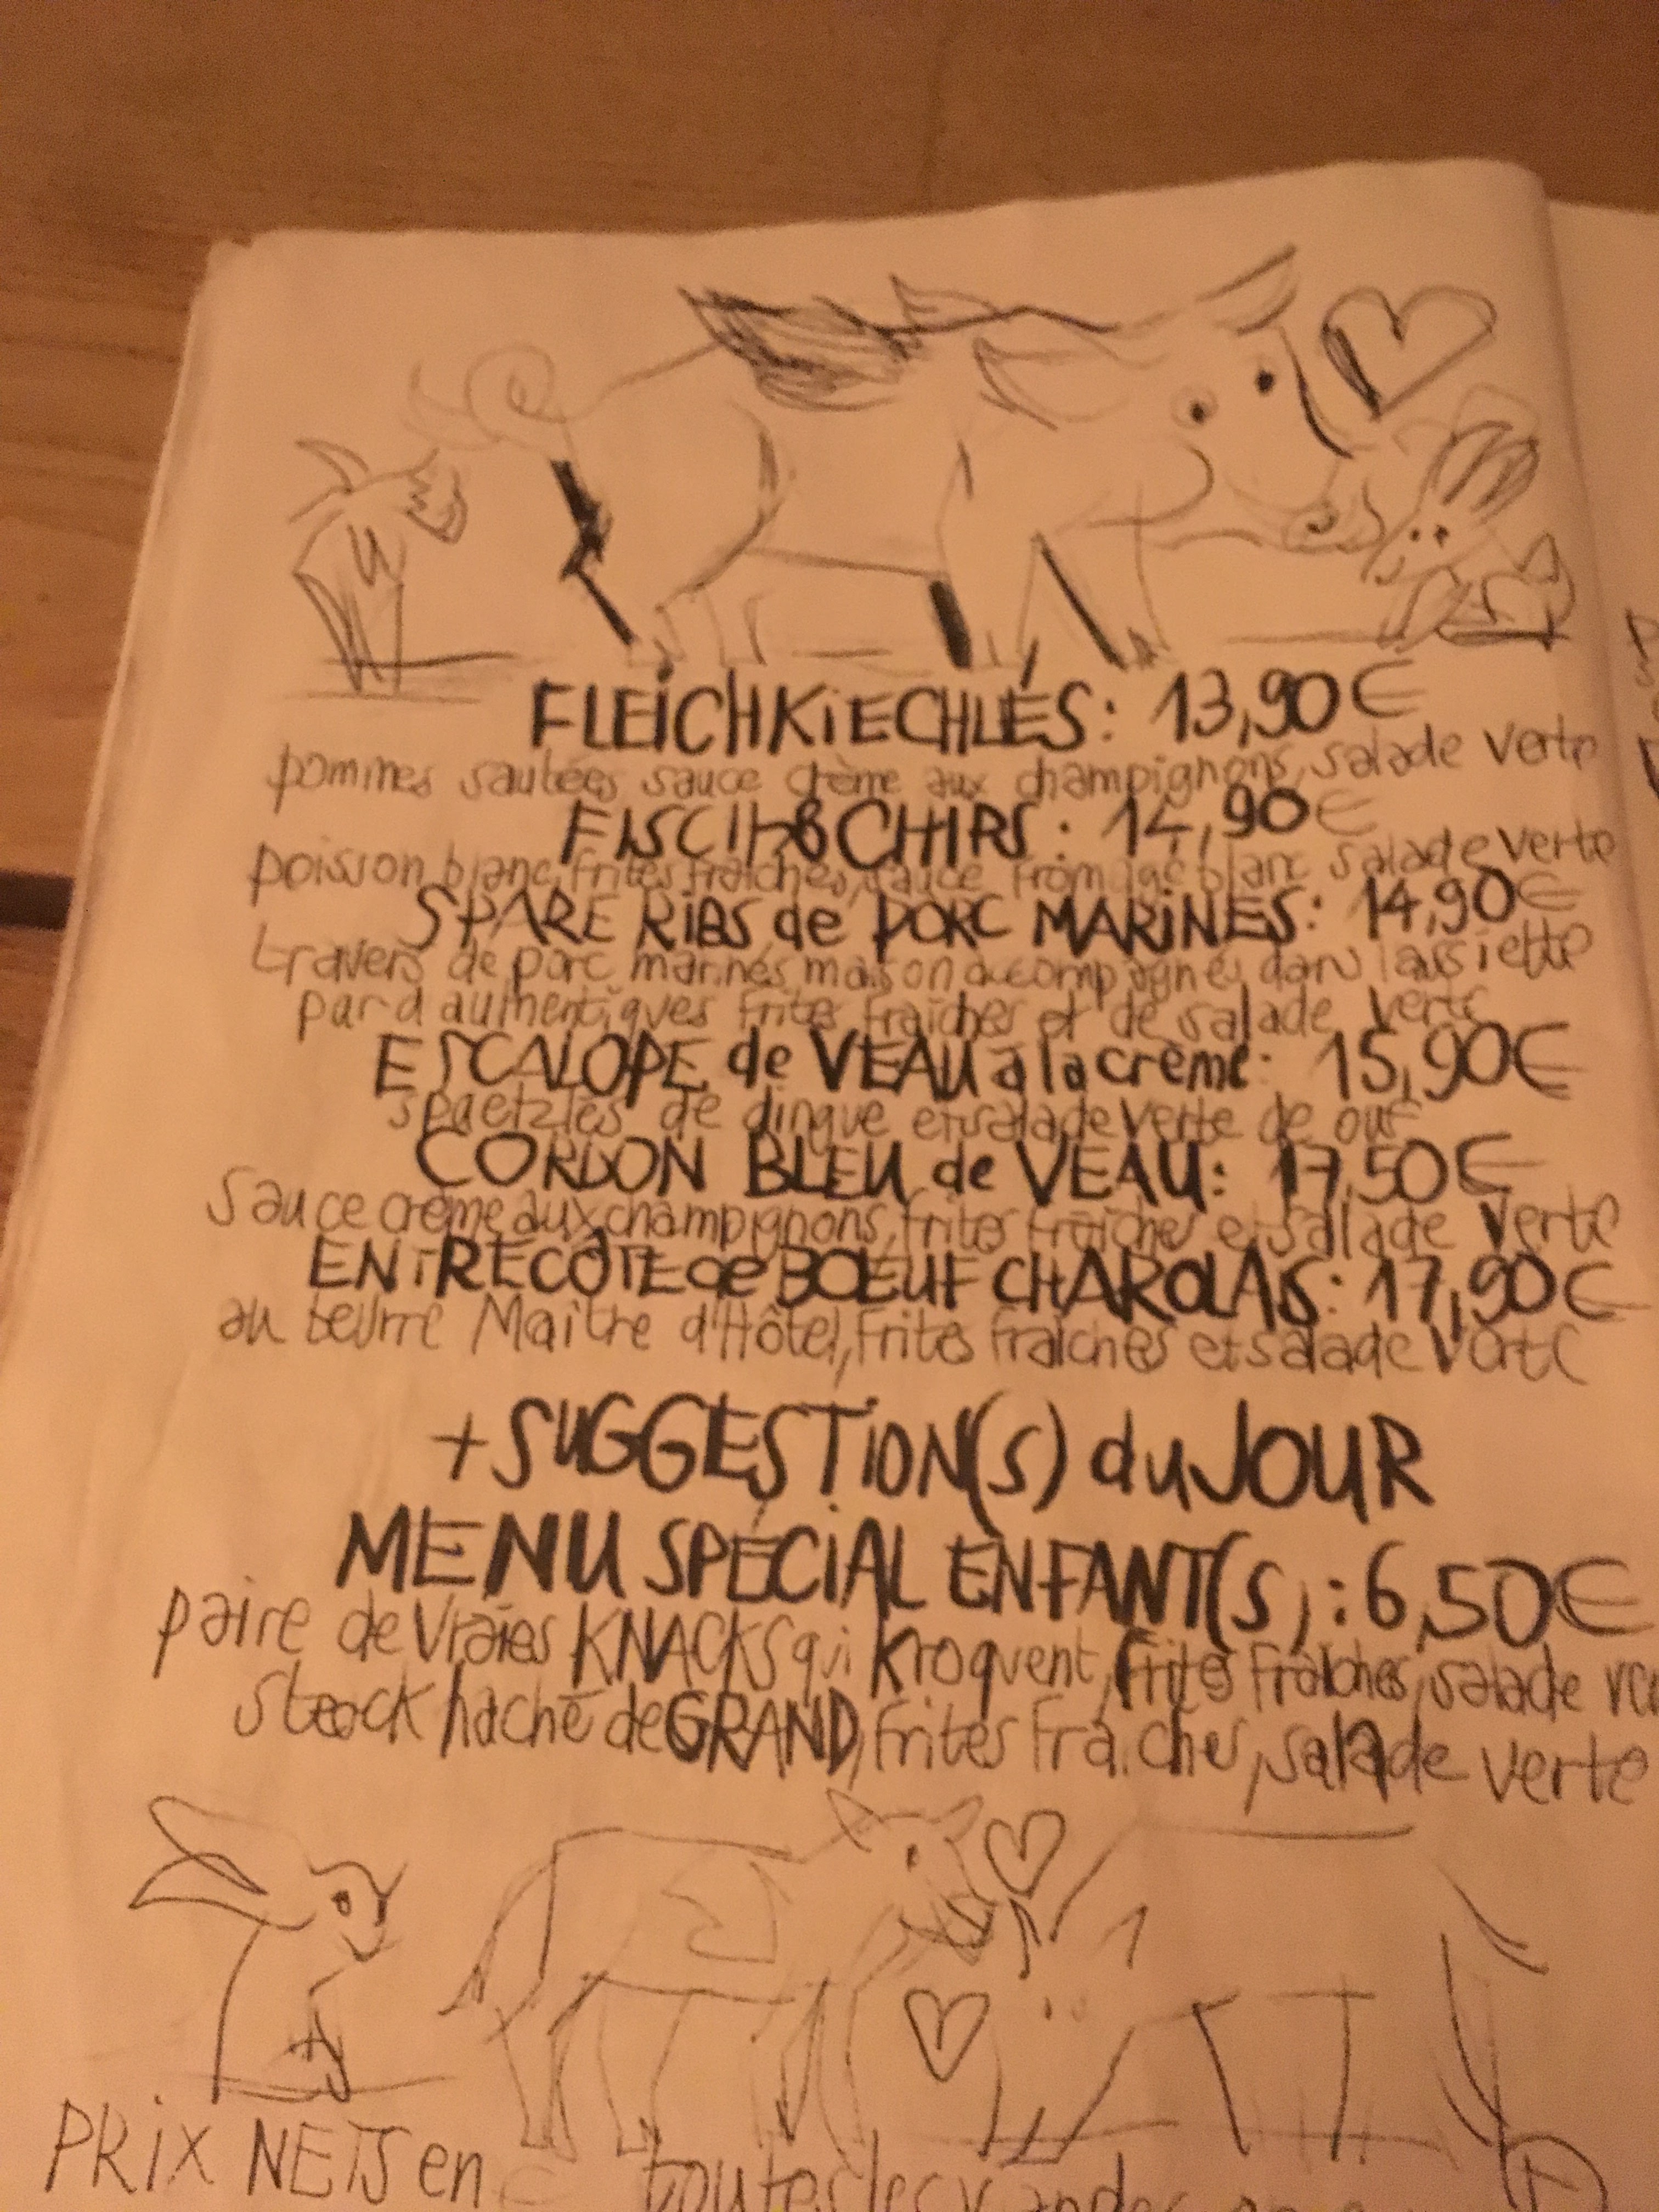 FLEICHKIECHLÉS: 13,90€
pommes sautées sauce crème aux champignons, salade verte
FISCH & CHIPS: 14,90€
poisson blanc, frites fraîches, sauce fromage blanc salade verte
SPARE RIBS de PORC MARINÉS: 14,90€
travers de porc marinés maison accompagnés dans l'assiette
par d'authentiques frites fraîches et de salade verte
ESCALOPE de VEAU à la crème: 15,90€
spaetzles de dingue et salade verte de ouf
CORDON BLEU de VEAU: 17,50€
sauce crème aux champignons, frites fraîches et salade verte
ENTRECÔTE de BOEUF CHAROLAIS: 17,90€
au beurre Maître d'Hôtel, frites fraîches et salade verte
+ SUGGESTION(S) du JOUR
MENU SPÉCIAL ENFANT(S): 6,50€
paire de vraies KNACKS qui kroquent, frites fraîches, salade
steack haché de GRAND, frites fraîches, salade verte
PRIX NETS en €
toutes les viandes